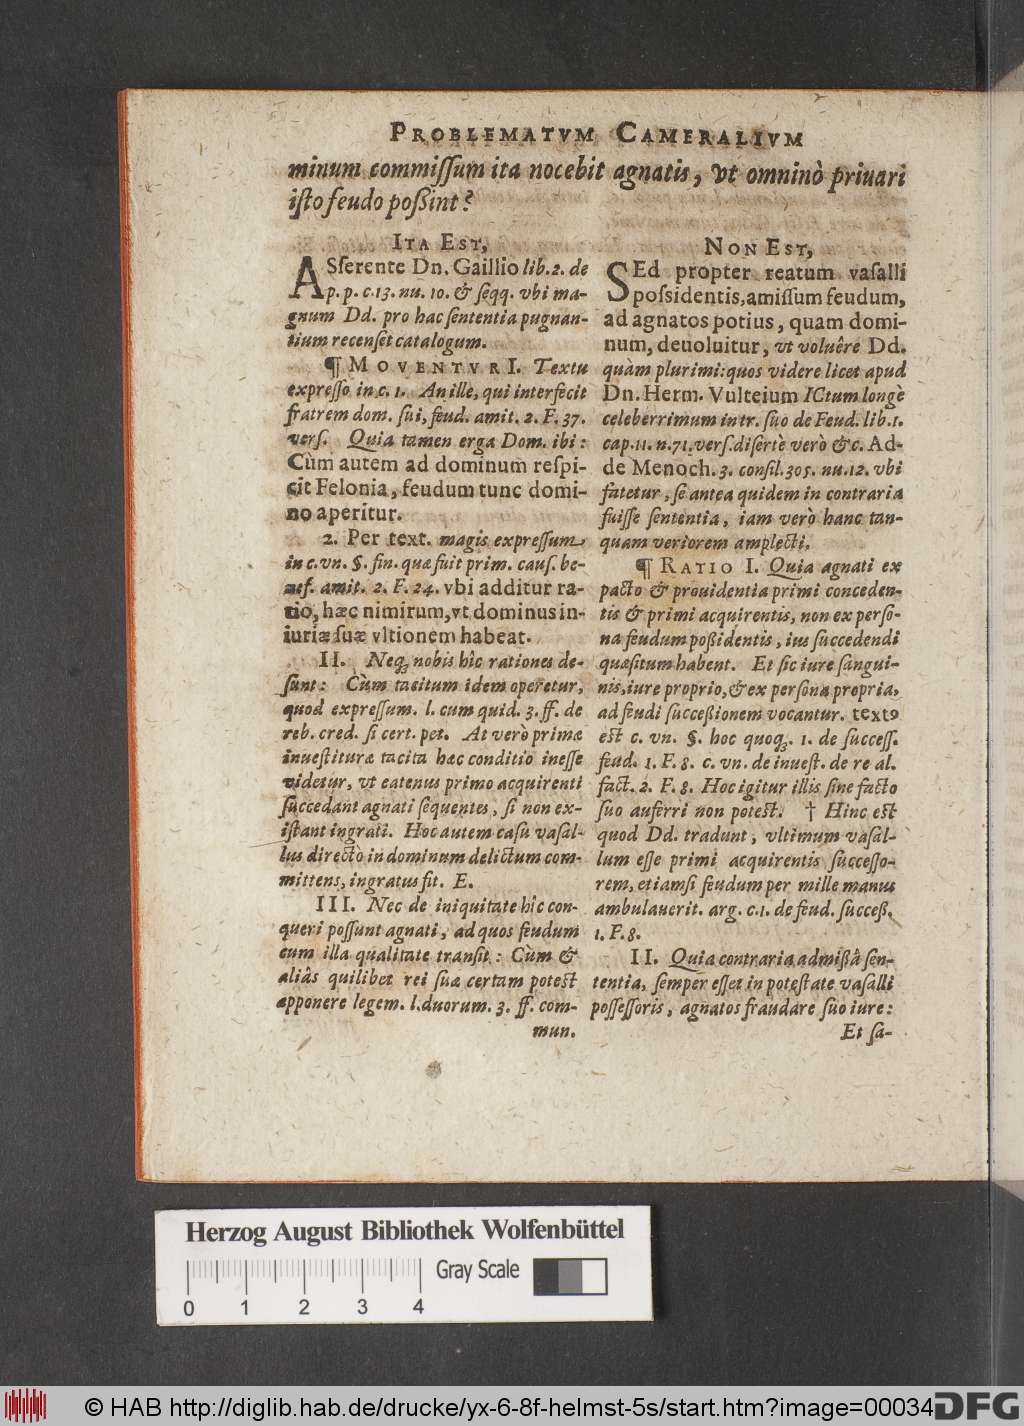 PROBLEMATVM CAMERALIVM
minum commiſſum ita nocebit agnatis, vt omninò priuari
iſto feudo poßint?
ITA EST,
ASſerente Dn. Gaillio lib. 2. de
p. p. c. 13. nu. 10. & ſeqq. vbi ma-
gnum Dd. pro hac ſententia pugnan-
tium recenſet catalogum.
¶ MOVENTVR I. Textu
expreſſo in c. 1. An ille, qui interfecit
fratrem dom. ſui, feud. amit. 2. F. 37.
verſ. Quia tamen erga Dom. ibi:
Cùm autem ad dominum reſpi-
cit Felonia, feudum tunc domi-
no aperitur.
2. Per text. magis expreſſum
in c. vn. §. fin. quæ fuit prim. cauſ. be-
nef. amit. 2. F. 24. vbi additur ra-
tio, hæc nimirum, vt dominus in-
iuriæ ſuæ vltionem habeat.
II. Neq; nobis hîc rationes de-
ſunt: Cùm tacitum idem operetur,
quod expreſſum. l. cum quid. 3. ff. de
reb. cred. ſi cert. pet. At verò primæ
inueſtituræ tacita hæc conditio ineſſe
videtur, vt eatenus primo acquirenti
ſuccedant agnati ſequentes, ſi non ex-
iſtant ingrati. Hoc autem caſu vaſal-
lus directo in dominum delictum com-
mittens, ingratus fit. E.
III. Nec de iniquitate hîc con-
queri poſſunt agnati, ad quos feudum
cum illa qualitate tranſit: Cùm &
aliàs quilibet rei ſuæ certam poteſt
apponere legem. l. duorum. 3. ff. com-
mun.
NON EST,
SEd propter reatum vaſalli
poſsidentis, amiſſum feudum,
ad agnatos potius, quam domi-
num, deuoluitur, vt voluêre Dd.
quàm plurimi: quos videre licet apud
Dn. Herm. Vulteium ICtum longè
celeberrimum in tr. ſuo de Feud. lib. 1.
cap. 11. n. 71. verſ. diſertè verò &c. Ad-
de Menoch. 3. conſil. 305. nu. 12. vbi
fatetur, ſe antea quidem in contraria
fuiſſe ſententia, iam verò hanc tan-
quam veriorem amplecti.
¶ RATIO I. Quia agnati ex
pacto & prouidentia primi conceden-
tis & primi acquirentis, non ex perſo-
na feudum poßidentis, ius ſuccedendi
quæſitum habent. Et ſic iure ſangui-
nis, iure proprio, & ex perſona propria,
ad feudi ſucceßionem vocantur. textꝰ
eſt c. vn. §. hoc quoq;. 1. de ſucceſſ.
feud. 1. F. 8. c. vn. de inueſt. de re al.
fact. 2. F. 8. Hoc igitur illis ſine facto
ſuo auferri non poteſt. † Hinc eſt
quod Dd. tradunt, vltimum vaſal-
lum eſſe primi acquirentis ſucceſſo-
rem, etiamſi feudum per mille manus
ambulauerit. arg. c. 1. de feud. ſucceß.
1. F. 8.
II. Quia contraria admißâ ſen-
tentia, ſemper eſſet in poteſtate vaſalli
poſſeſſoris, agnatos fraudare ſuo iure:
Et ſa-
Herzog August Bibliothek Wolfenbüttel
Gray Scale
0 1 2 3 4
© HAB http://diglib.hab.de/drucke/yx-6-8f-helmst-5s/start.htm?image=00034
DFG